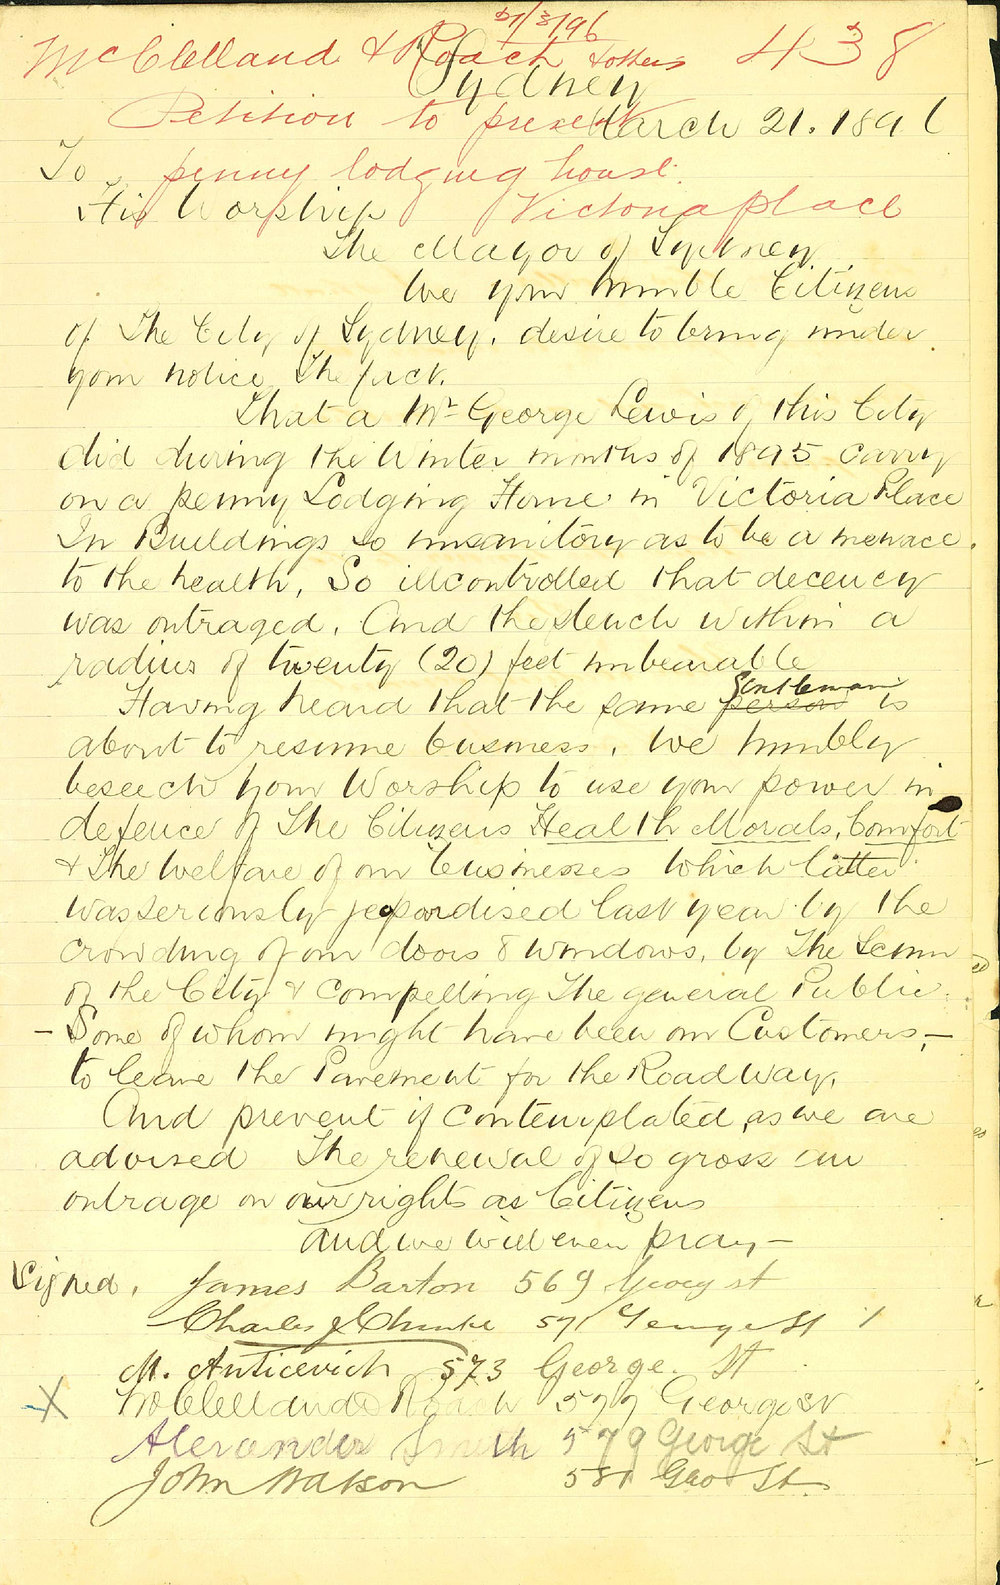 27/3/96
McClelland & Roach & others 438
Sydney
Petition to prevent
March 21. 1896
To penny lodging house.
His Worship Victoria place
The Mayor of Sydney
We your humble Citizens
of The City of Sydney. desire to bring under
your notice The fact.
That a Mr George Lewis of this City
did during the Winter months of 1895 carry
on a penny Lodging Home in Victoria Place
In Buildings so unsanitory as to be a menace.
to the health, So illcontrolled that decency
was outraged. And the stench within a
radius of twenty (20) feet unbearable
Having heard that the same person Gentleman is
about to resume business, We humbly
beseech your Worship to use your power in
defence of The Citizens Health Morals, Comfort
& The Welfare of our businesses which latter
was seriously jepordised last year by the
crowding of our doors & windows, by The Scum
of the City & compelling The general Public
- Some of whom might have been our Customers, -
to leave the Pavement for the Roadway.
And prevent if contemplated, as we are
advised The renewal of so gross an
outrage on our rights as Citizens
and we will ever pray -
Signed. James Barton 569 Georg st
Charles J 571 George St
M. Anticevich 573 George. St
X McClelland & Roach 577 George St
Alexander Smith 579 George St
John Watson 581 Geo St.